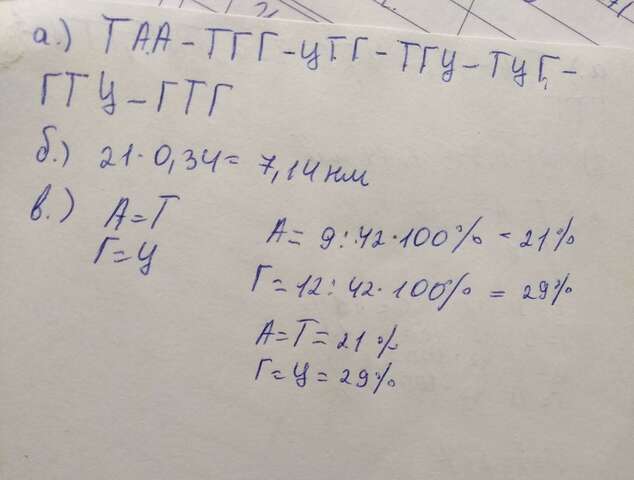 а.) ТАА - ТГГ - ЦТГ - ТГЦ - ТЦГ -
ГТЦ - ГТГ
б.) 21 · 0,34 = 7,14 нм
в.) А=Т
Г=Ц
А = 9 : 42 · 100% = 21%
Г = 12 : 42 · 100% = 29%
А=Т= 21%
Г=Ц= 29%